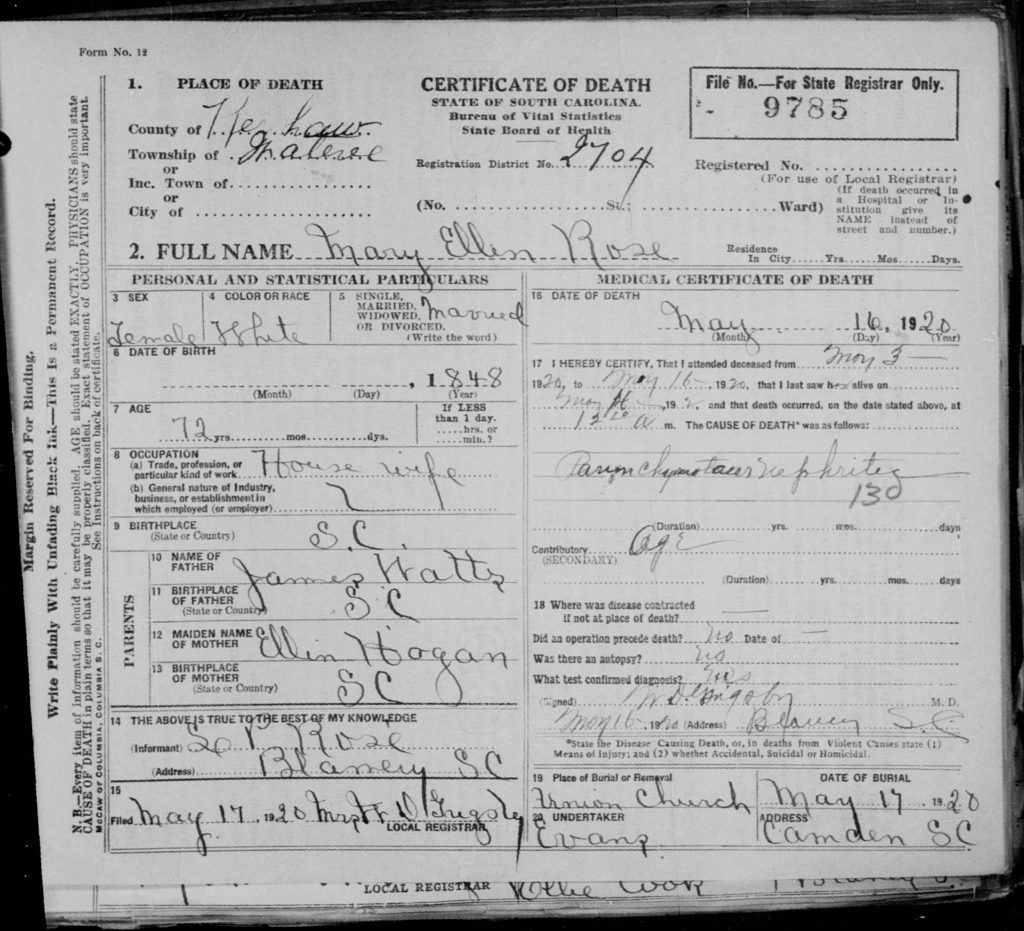 Form No. 12
Margin Reserved For Binding.
Write Plainly With Unfading Black Ink—This Is a Permanent Record.
N. B.—Every item of information should be carefully supplied. AGE should be stated EXACTLY. PHYSICIANS should state
CAUSE OF DEATH in plain terms so that it may be properly classified. Exact statement of OCCUPATION is very important.
See Instructions on back of certificate.
McCAW OF COLUMBIA, COLUMBIA S. C.
1. PLACE OF DEATH
County of Kershaw
Township of
or
Inc. Town of
or
City of
CERTIFICATE OF DEATH
STATE OF SOUTH CAROLINA.
Bureau of Vital Statistics
State Board of Health
Registration District No. 2704
(No. St.; Ward)
File No.—For State Registrar Only.
9785
Registered No.
(For use of Local Registrar)
(If death occurred in
a Hospital or In-
stitution give its
NAME instead of
street and number.)
2. FULL NAME Mary Ellen Rose
Residence
In City Yrs. Mos. Days.
PERSONAL AND STATISTICAL PARTICULARS
3 SEX
Female
4 COLOR OR RACE
White
5 SINGLE,
MARRIED,
WIDOWED,
OR DIVORCED.
Married
(Write the word)
6 DATE OF BIRTH
, 1848
(Month) (Day) (Year)
7 AGE
72 yrs. mos. dys.
If LESS
than 1 day.
hrs. or
min.?
8 OCCUPATION
(a) Trade, profession, or
particular kind of work House wife
(b) General nature of Industry,
business, or establishment in
which employed (or employer)
9 BIRTHPLACE
(State or Country) S.C.
PARENTS
10 NAME OF
FATHER James Watts
11 BIRTHPLACE
OF FATHER
(State or Country) SC
12 MAIDEN NAME
OF MOTHER Ellin Hogan
13 BIRTHPLACE
OF MOTHER
(State or Country) SC
14 THE ABOVE IS TRUE TO THE BEST OF MY KNOWLEDGE
(Informant) Rose
(Address) Blaney SC
15
Filed May 17, 1920 Mrs W D Grigsby
LOCAL REGISTRAR
MEDICAL CERTIFICATE OF DEATH
16 DATE OF DEATH
May 16, 1920
(Month) (Day) (Year)
17 I HEREBY CERTIFY, That I attended deceased from May 3
1920, to May 16, 1920, that I last saw her alive on
May 192 and that death occurred, on the date stated above, at
12 a m. The CAUSE OF DEATH* was as follows:
Nephritis
130
(Duration) yrs. mos. days
Contributory Age
(SECONDARY)
(Duration) yrs. mos. days
18 Where was disease contracted
if not at place of death?
Did an operation precede death? No Date of
Was there an autopsy? No
What test confirmed diagnosis?
(Signed) W D Grigsby M. D.
May 16, 1920 (Address) Blaney S.C.
*State the Disease Causing Death, or, in deaths from Violent Causes state (1)
Means of Injury; and (2) whether Accidental, Suicidal or Homicidal.
19 Place of Burial or Removal
Union Church
DATE OF BURIAL
May 17 1920
20 UNDERTAKER
Evans
ADDRESS
Camden SC
LOCAL REGISTRAR Cook